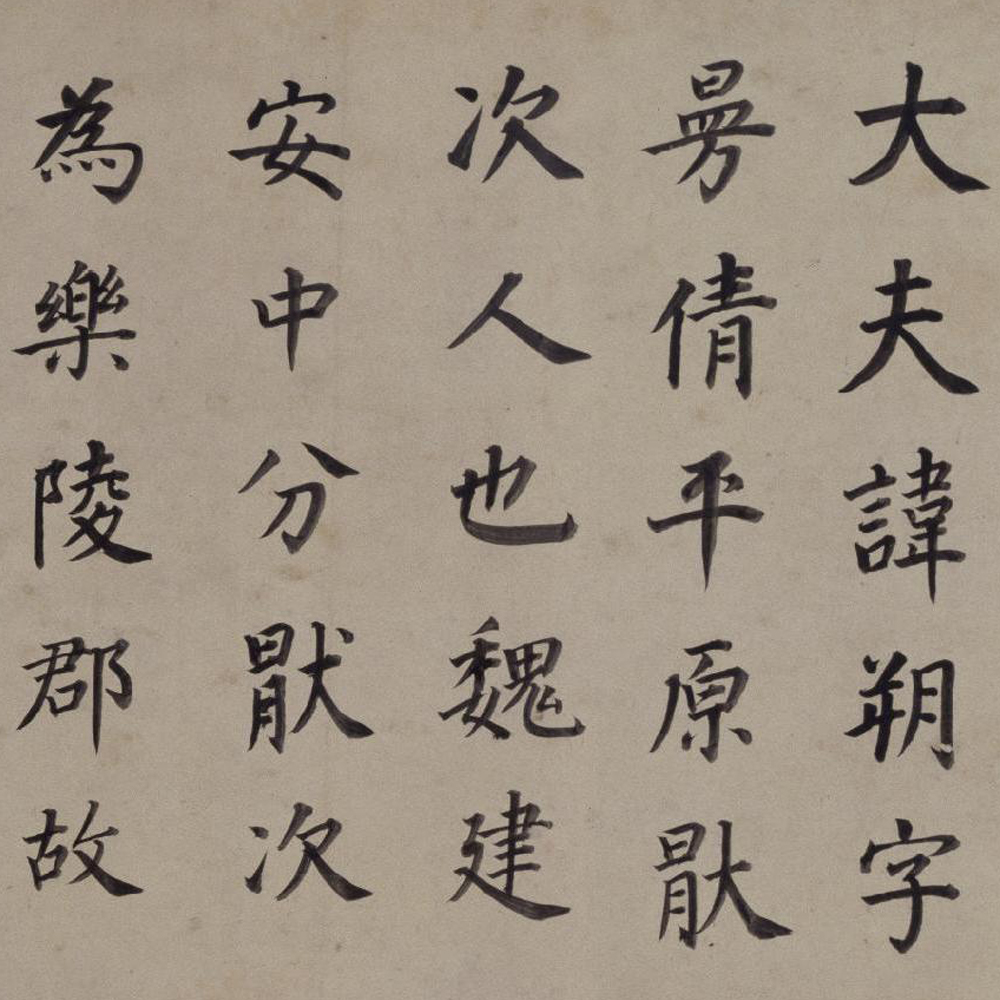 大夫諱朔字
曼倩平原猒
次人也魏建
安中分猒次
為樂陵郡故